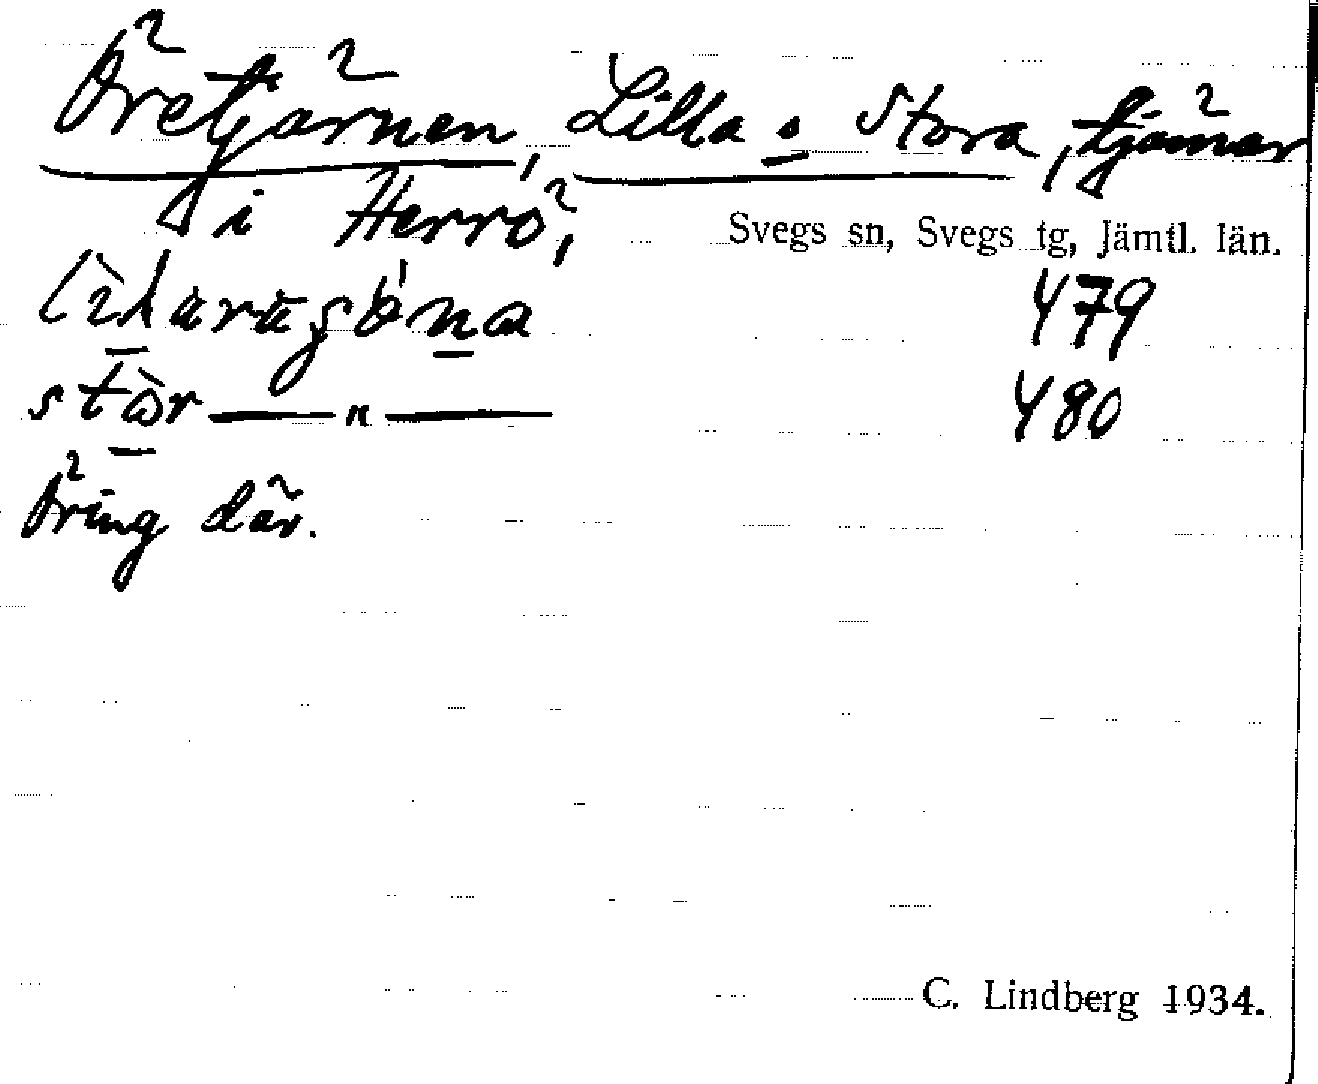 Öretjärnen, Lilla o Stora, tjärnar
i Herrö, Svegs sn, Svegs tg, Jämtl. län.
479
480
Öring där.
C. Lindberg 1934.